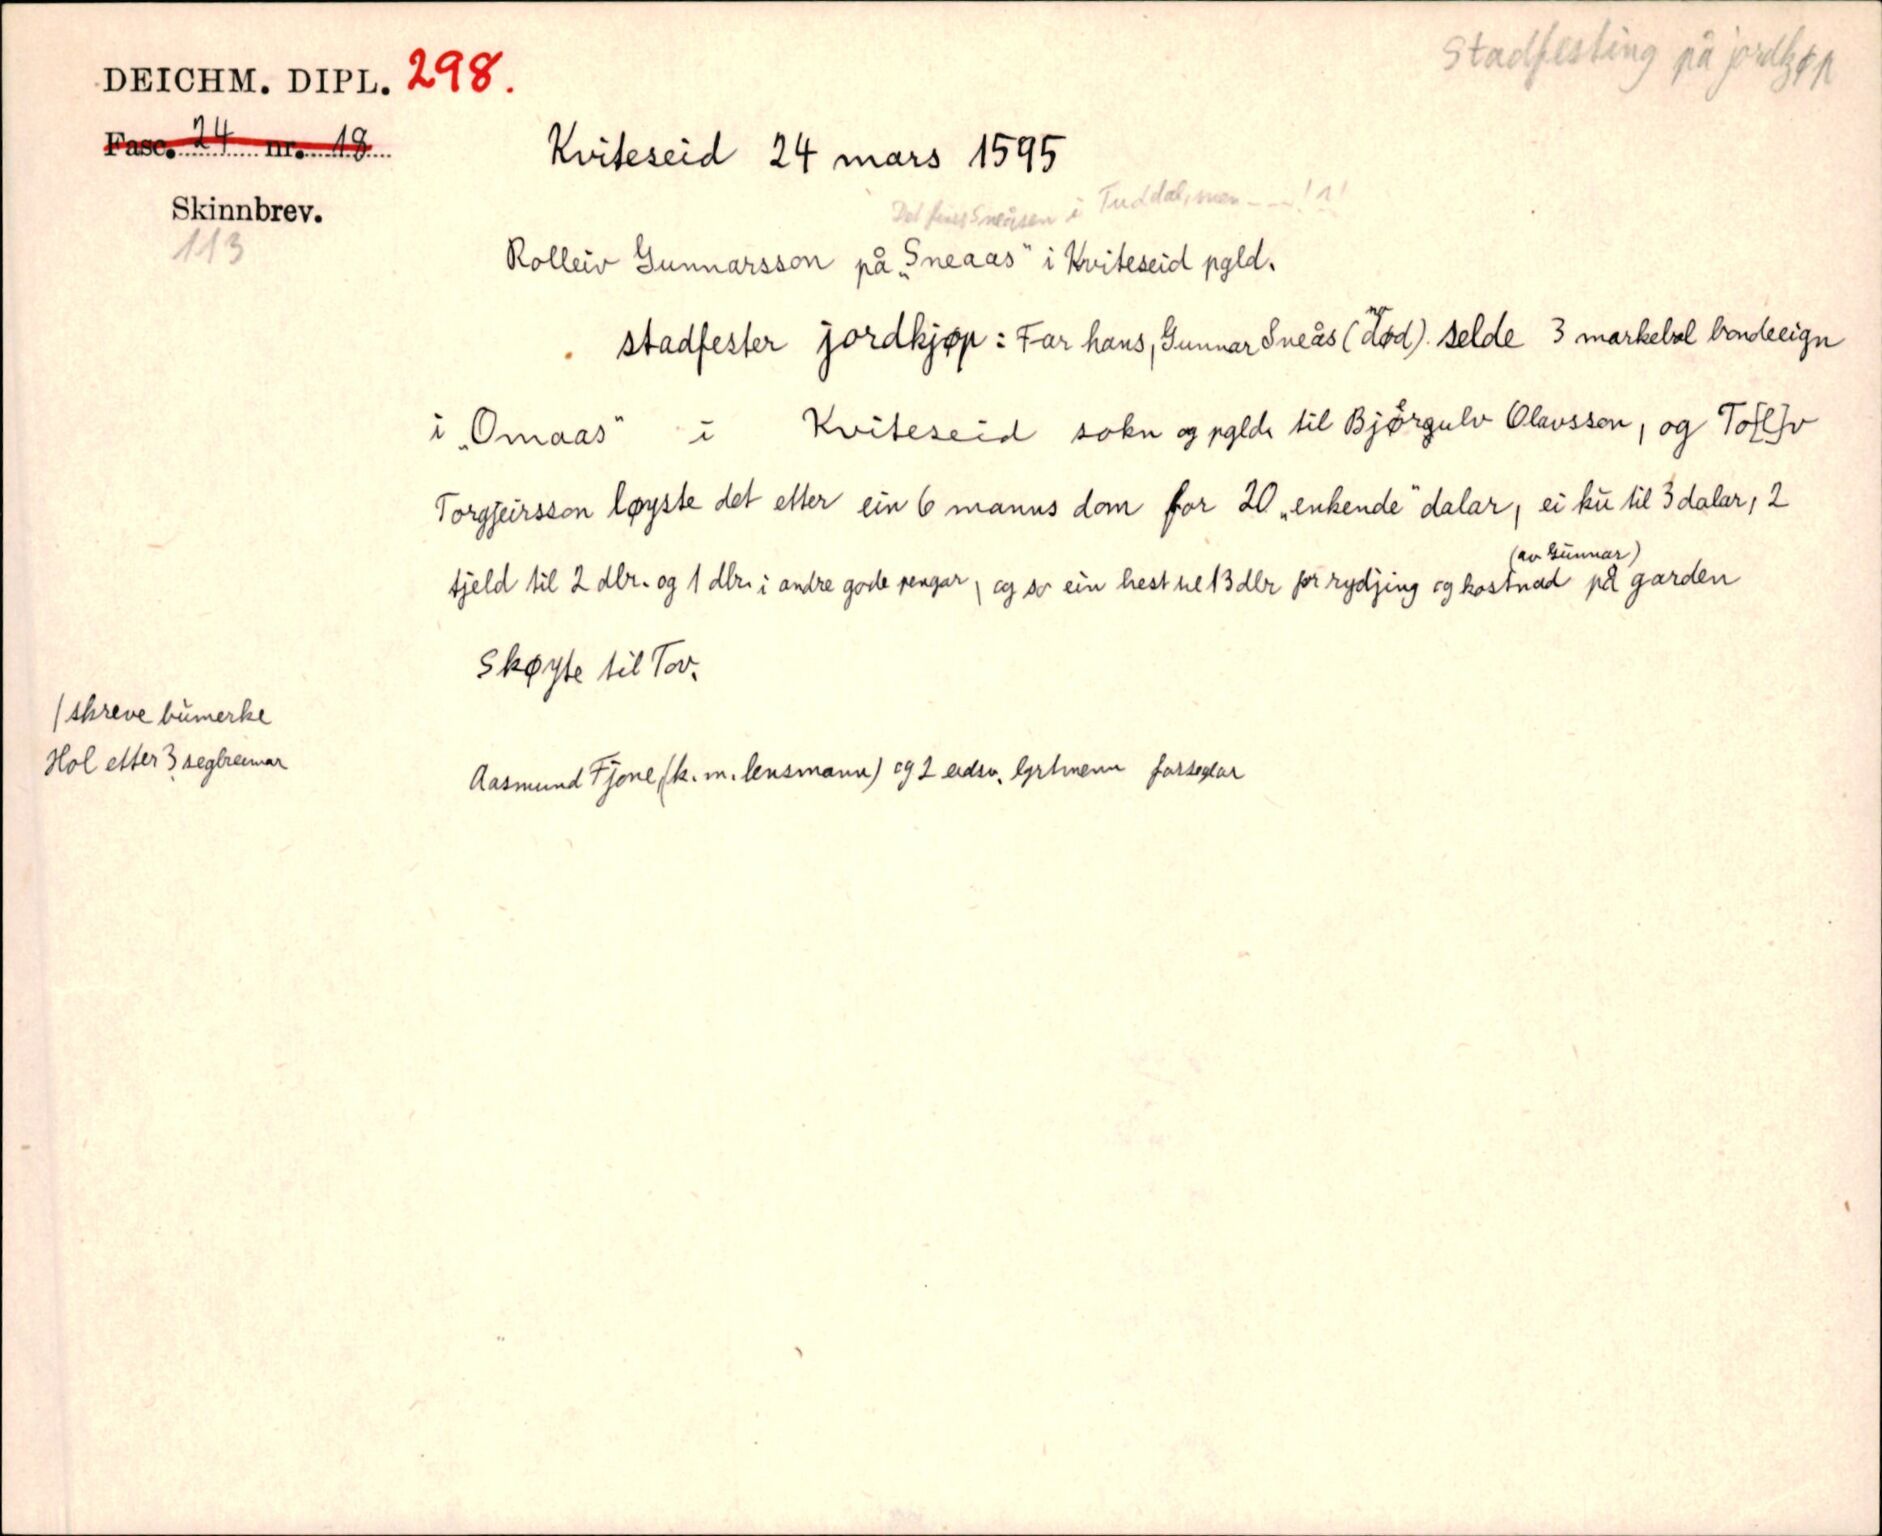 Stadfesting på jordkjøp
DEICHM. DIPL. 298.
Fasc. 24 nr. 18
Skinnbrev.
113
Kviteseid 24 mars 1595
Det finst Sneåsen i Tuddal, men - - - ! 1 !
Rolleiv Gunnarsson på „Sneaas" i Kviteseid pgld.
stadfester jordkjøp : Far hans, Gunnar Sneås (no død). selde 3 markebol bondeeign
i „Omaas" i Kviteseid sokn og pgld. til Bjørgulv Olavsson, og To[l]v
Torgjeirsson løyste det etter ein 6 manns dom for 20 „enkende" dalar, ei ku til 3 dalar, 2
tjeld til 2 dlr. og 1 dlr. i andre gode pengar, og so ein hest til 13 dlr for rydjing og kostnad (av Gunnar) på garden
Skøyte til Tov.
/ skreve bumerke
Hol etter 3 seglreimar
Aasmund Fjone (k. m. lensmann) og 2 eidsv. lgrtmenn forseglar